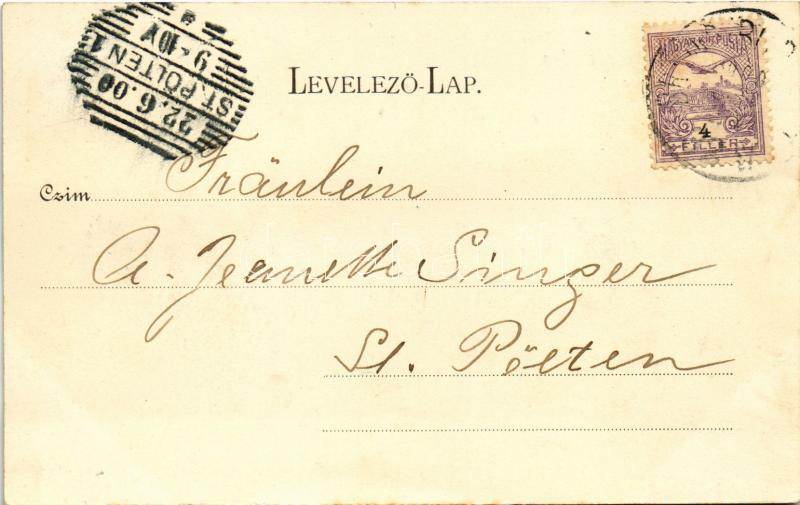 ST. PÖLTEN 1
22.6.00
9-10V
LEVELEZÖ-LAP.
MAGYAR KIR. POSTA
4
FILLER
Czim Fräulein
A. Jeanette Singer
St. Pölten